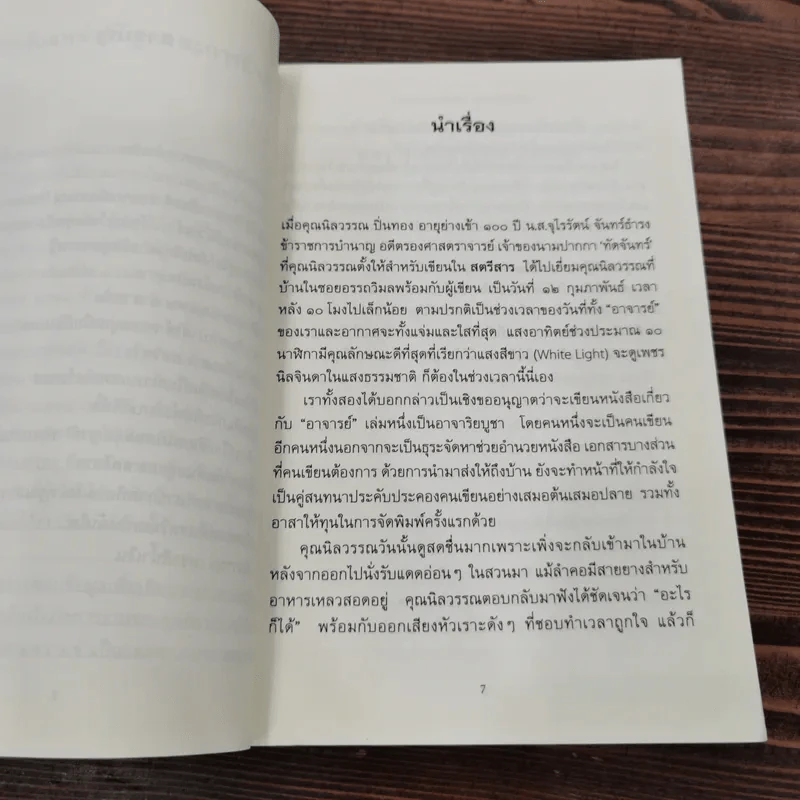 นำเรื่อง
เมื่อคุณนิลวรรณ ปิ่นทอง อายุย่างเข้า ๑๐๐ ปี น.ส.จุไรรัตน์ จันทร์ธำรง
ข้าราชการบำนาญ อดีตรองศาสตราจารย์ เจ้าของนามปากกา ‘ทัดจันทร์’
ที่คุณนิลวรรณตั้งให้สำหรับเขียนใน สตรีสาร ได้ไปเยี่ยมคุณนิลวรรณที่
บ้านในซอยอรรถวิมลพร้อมกับผู้เขียน เป็นวันที่ ๑๒ กุมภาพันธ์ เวลา
หลัง ๑๐ โมงไปเล็กน้อย ตามปรกติเป็นช่วงเวลาของวันที่ทั้ง “อาจารย์”
ของเราและอากาศจะทั้งแจ่มและใสที่สุด แสงอาทิตย์ช่วงประมาณ ๑๐
นาฬิกามีคุณลักษณะดีที่สุดที่เรียกว่าแสงสีขาว (White Light) จะดูเพชร
นิลจินดาในแสงธรรมชาติ ก็ต้องในช่วงเวลานี้นี่เอง
เราทั้งสองได้บอกกล่าวเป็นเชิงขออนุญาตว่าจะเขียนหนังสือเกี่ยว
กับ “อาจารย์” เล่มหนึ่งเป็นอาจาริยบูชา โดยคนหนึ่งจะเป็นคนเขียน
อีกคนหนึ่งนอกจากจะเป็นธุระจัดหาช่วยอำนวยหนังสือ เอกสารบางส่วน
ที่คนเขียนต้องการ ด้วยการนำมาส่งให้ถึงบ้าน ยังจะทำหน้าที่ให้กำลังใจ
เป็นคู่สนทนาประคับประคองคนเขียนอย่างเสมอต้นเสมอปลาย รวมทั้ง
อาสาให้ทุนในการจัดพิมพ์ครั้งแรกด้วย
คุณนิลวรรณวันนั้นดูสดชื่นมากเพราะเพิ่งจะกลับเข้ามาในบ้าน
หลังจากออกไปนั่งรับแดดอ่อนๆ ในสวนมา แม้ลำคอมีสายยางสำหรับ
อาหารเหลวสอดอยู่ คุณนิลวรรณตอบกลับมาฟังได้ชัดเจนว่า “อะไร
ก็ได้” พร้อมกับออกเสียงหัวเราะดังๆ ที่ชอบทำเวลาถูกใจ แล้วก็
7